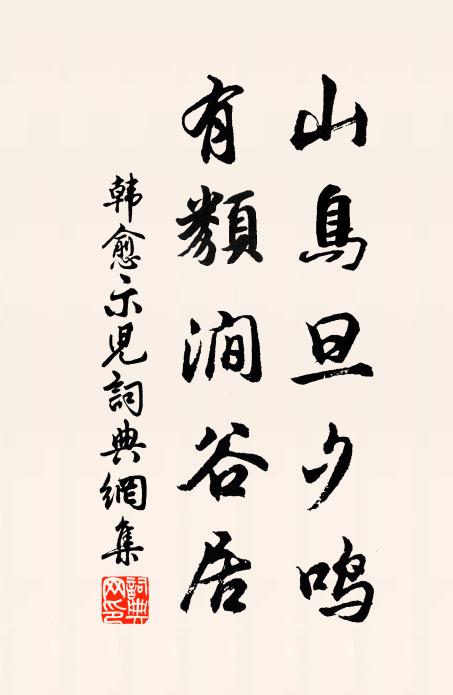 山鳥旦夕鸣
有類澗谷居
韩愈示児詞典網集
詞典网印